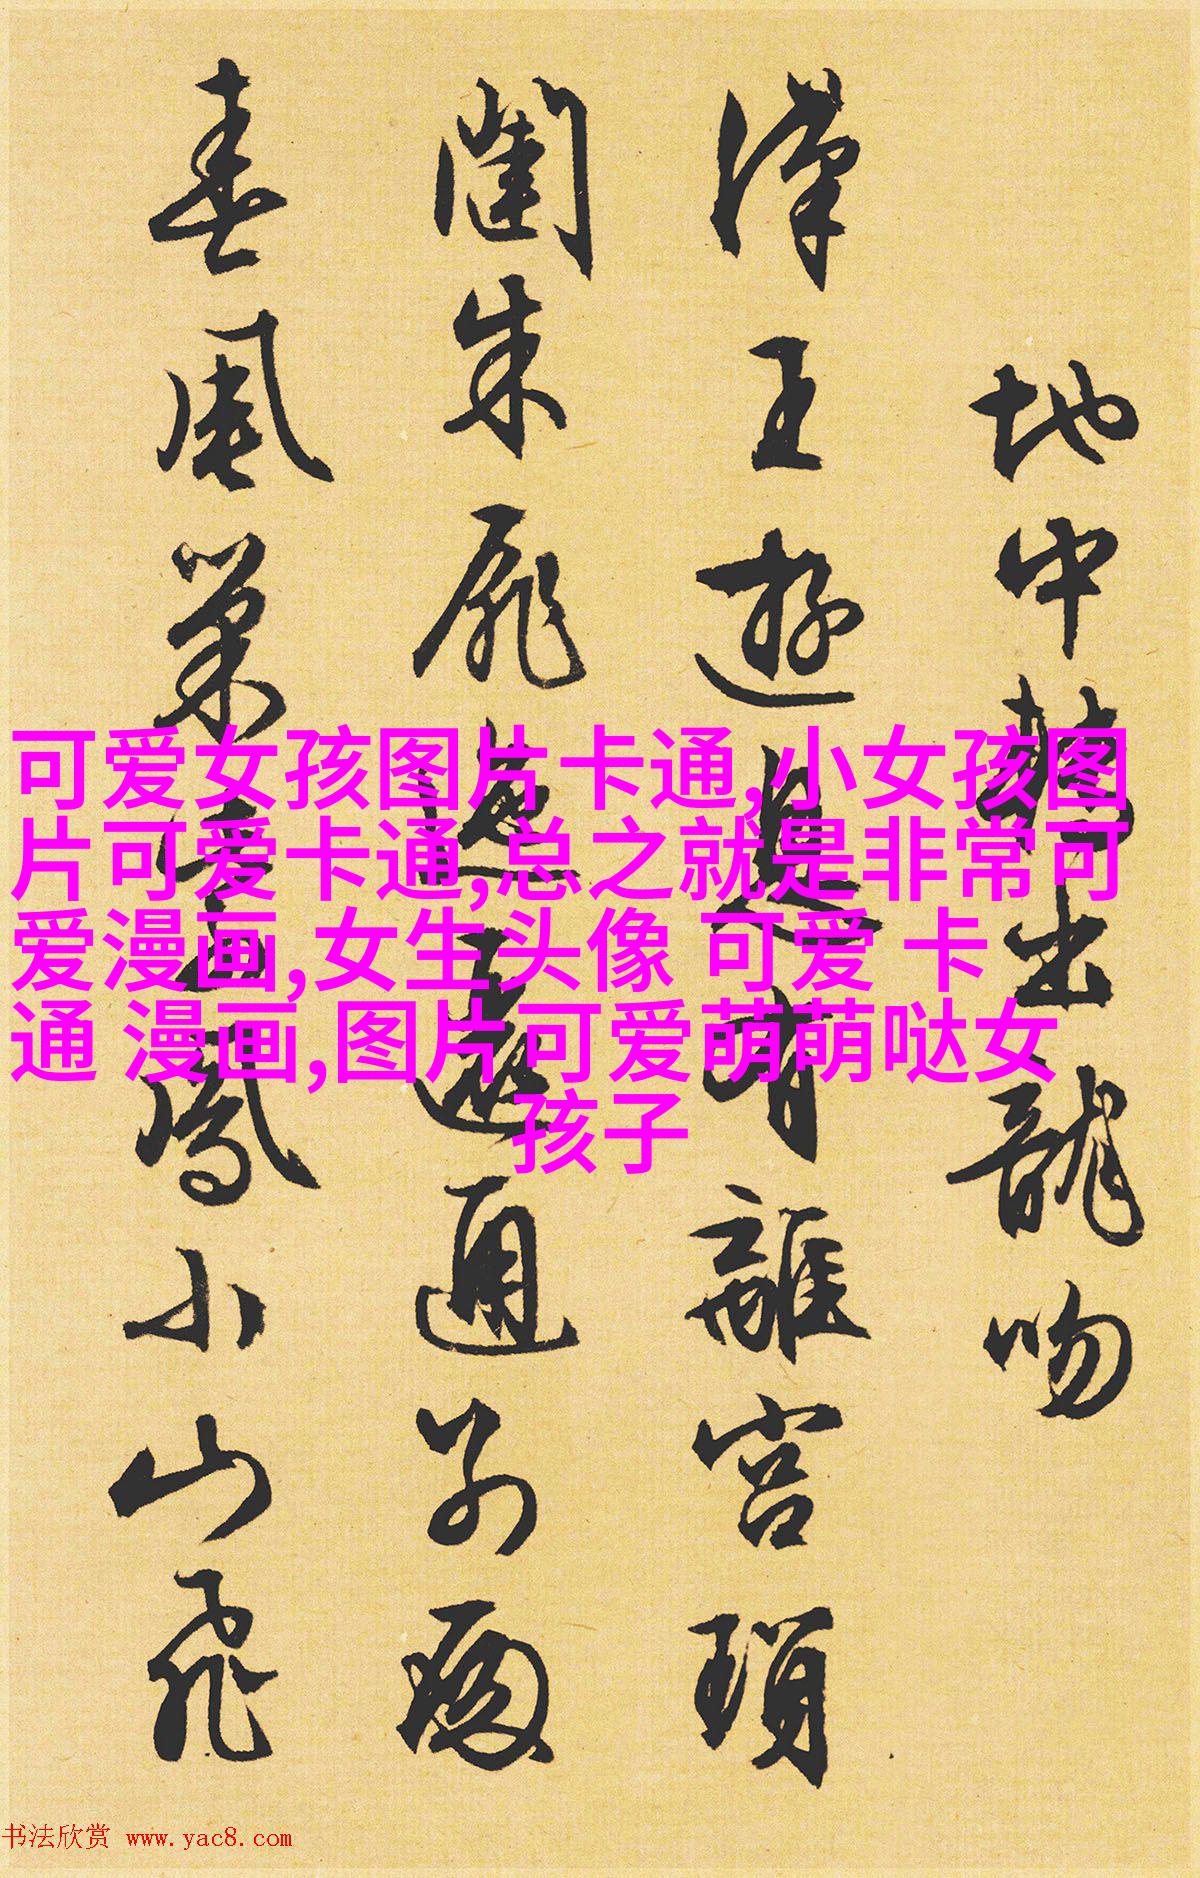 地中鸞出龍吻
漢王遊息有離宮瑣
闈朱扉迤邐通別殿
春風巢小鳳小山飛
可爱女孩图片卡通,小女孩图
片可爱卡通,总之就是非常可
爱漫画,女生头像 可爱 卡
通 漫画,图片可爱萌萌哒女
孩子
书法欣赏 www.yac8.com